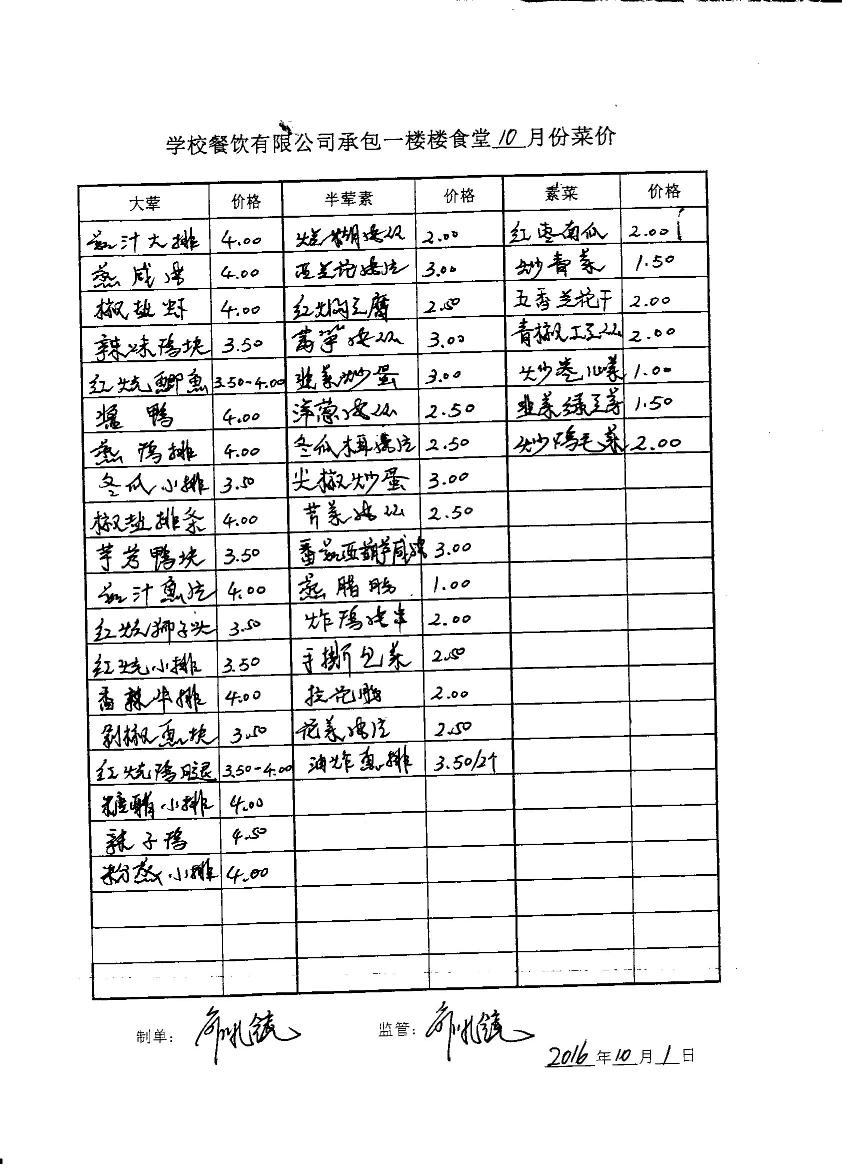 学校餐饮有限公司承包一楼楼食堂10月份菜价
大荤 价格 半荤素 价格 素菜 价格
茄汁大排 4.00 2.00 红枣南瓜 2.00
蒸咸 4.00 3.00 炒青菜 1.50
椒盐虾 4.00 红焖豆腐 2.50 五香兰花干 2.00
辣味鸡块 3.50 莴笋肉丝 3.00 青椒土豆丝 2.00
红烧鲫鱼 3.50-4.00 韭菜炒蛋 3.00 炒卷心菜 1.00
酱鸭 4.00 洋葱肉丝 2.50 韭菜绿豆芽 1.50
蒸鸡排 4.00 冬瓜木耳肉片 2.50 炒鸡毛菜 2.00
冬瓜小排 3.50 尖椒炒蛋 3.00
椒盐排条 4.00 芹菜肉丝 2.50
芋艿鸭块 3.50 3.00
茄汁鱼片 4.00 蒸腊肠 1.00
红烧狮子头 3.50 炸鸡肉串 2.00
红烧小排 3.50 手撕包菜 2.50
香辣牛排 4.00 2.00
剁椒鱼块 3.50 花菜肉片 2.50
红烧鸡腿 3.50-4.00 油炸鱼排 3.50/2个
糖醋小排 4.00
辣子鸡 4.50
粉蒸小排 4.00
制单： 监管：
2016年10月1日